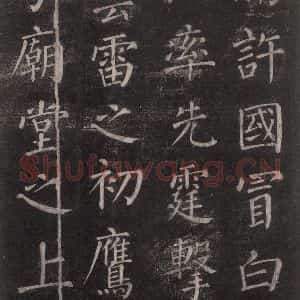 許國冒白
率先霆擊
雲雷之初鷹
廟堂之上
Shufawang.CN